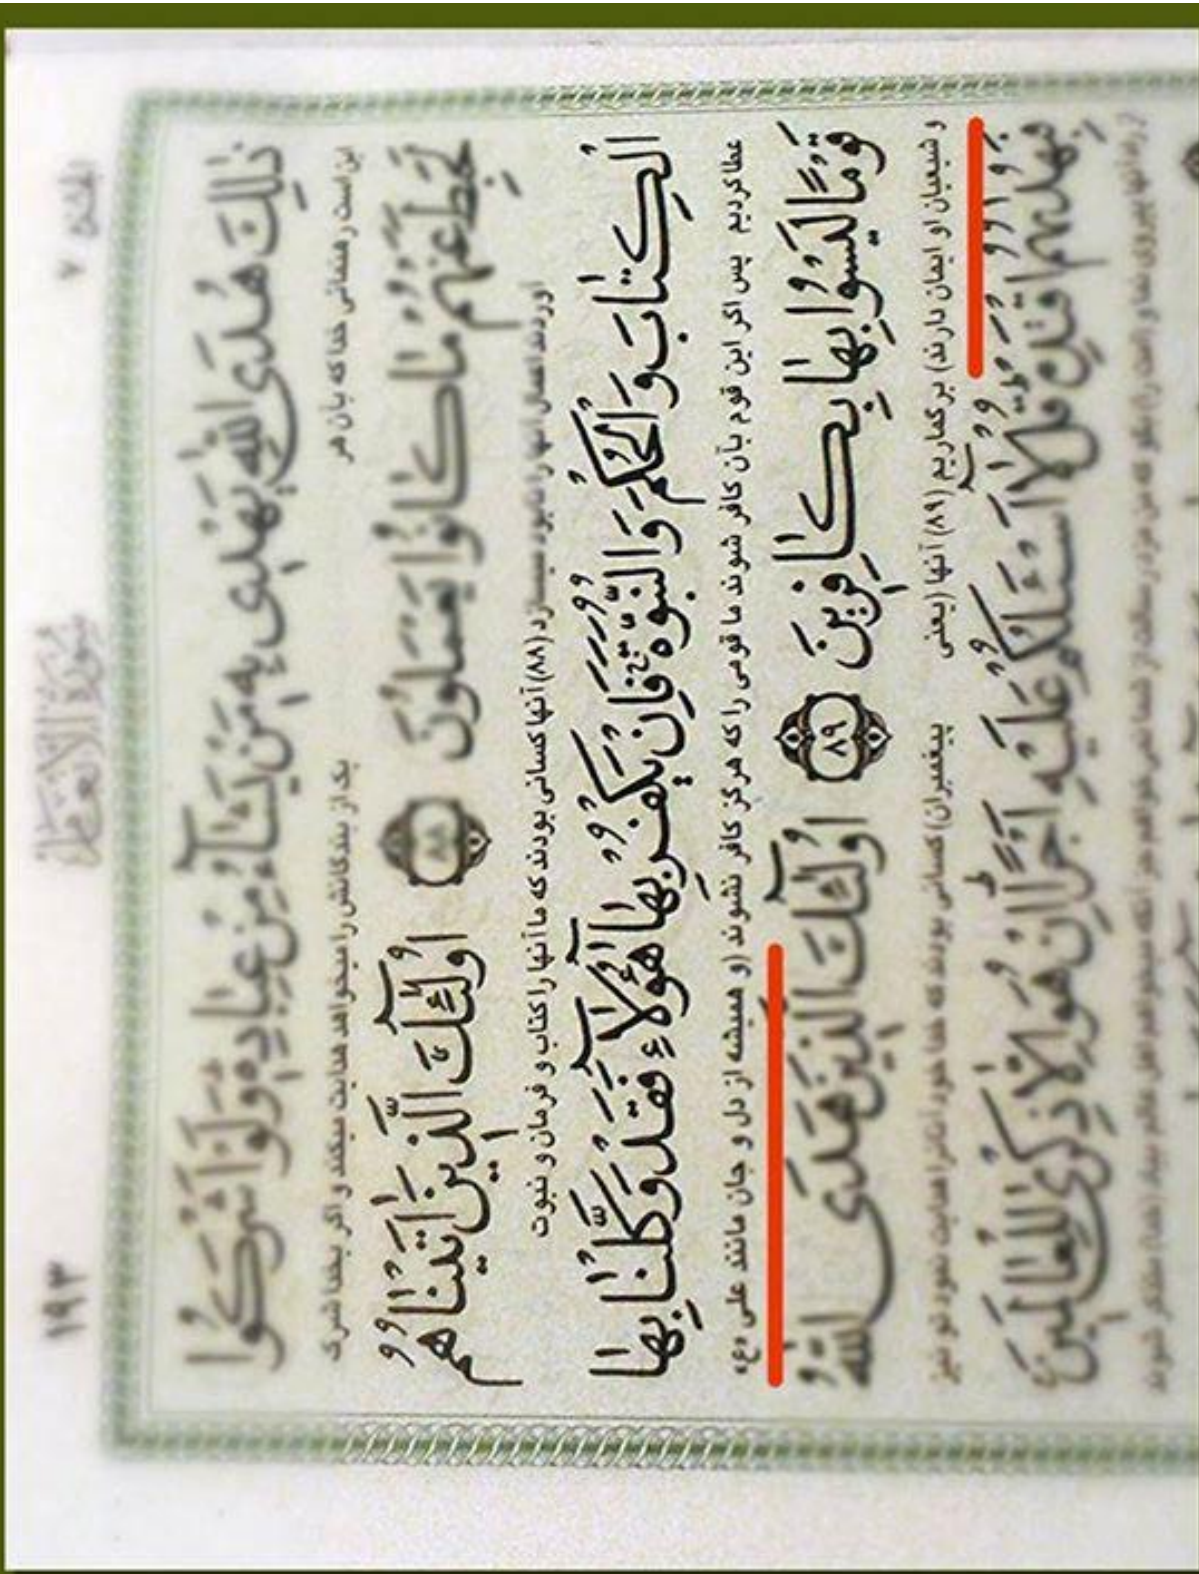 الجزء ٧
سورة الانعام
١٩٣
ذٰلِكَ هُدَى اللّٰهِ يَهْدِى بِهٖ مَنْ يَشَآءُ مِنْ عِبَادِهٖ وَلَوْ اَشْرَكُوا
این است رهنمائی خدا که بآن هر یک از بندگانش را میخواهد هدایت میکند و اگر بخدا شرک
لَحَبِطَ عَنْهُمْ مَا كَانُوا يَعْمَلُونَ ﴿٨٨﴾ اُولٰٓئِكَ الَّذِينَ اٰتَيْنَاهُمُ
آوردند اعمال آنها را نابود میسازد (۸۸) آنها کسانی بودند که ما آنها را کتاب و فرمان و نبوت
الْكِتَابَ وَالْحُكْمَ وَالنُّبُوَّةَ فَاِنْ يَكْفُرْ بِهَا هٰٓؤُلَآءِ فَقَدْ وَكَّلْنَا بِهَا
عطا کردیم پس اگر این قوم بآن کافر شوند ما قومی را که هرگز کافر نشوند (و همیشه از دل و جان مانند علی «ع»
قَوْمًا لَيْسُوا بِهَا بِكَافِرِينَ ﴿٨٩﴾ اُولٰٓئِكَ الَّذِينَ هَدَى اللّٰهُ
و شیعیان او ایمان دارند) برگماریم (۸۹) آنها (یعنی پیغمبران) کسانی بودند که خدا خود آنانرا هدایت نمود تو نیز
فَبِهُدٰيهُمُ اقْتَدِهْ قُلْ لَآ اَسْئَلُكُمْ عَلَيْهِ اَجْرًا اِنْ هُوَ اِلَّا ذِكْرٰى لِلْعَالَمِينَ
از آنها پیروی نما و امت را بگو که من مزد رسالت از شما نمی‌خواهم جز آنکه میخواهم اهل عالم بیاد خدا متذکر شوند